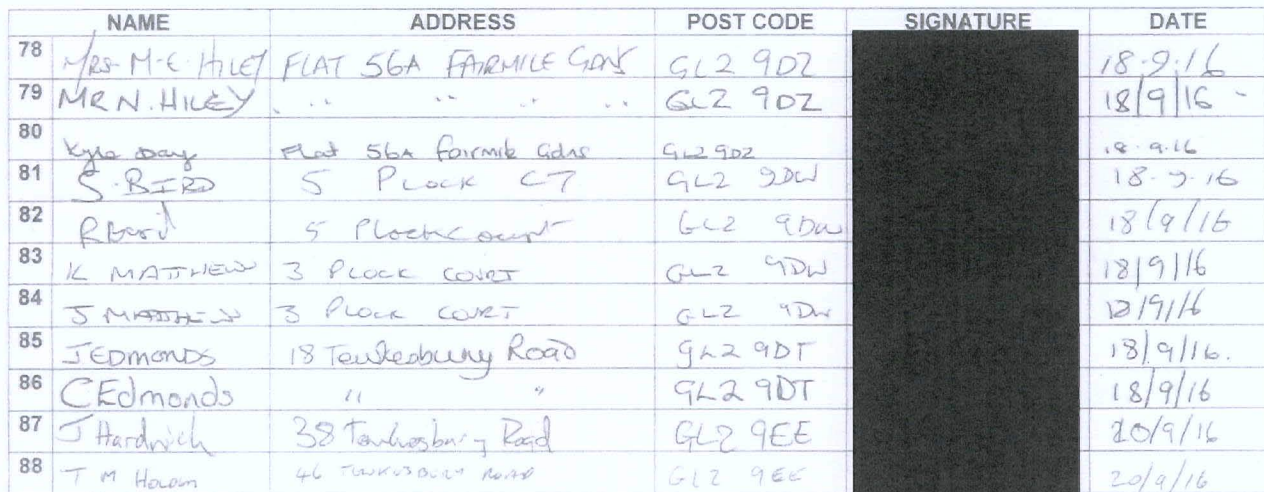 NAME ADDRESS POST CODE SIGNATURE DATE
78 MRS M.E. HILEY FLAT 56A FAIRMILE GDNS GL2 9DZ 18.9.16
79 MR N. HILEY .. .. .. .. GL2 9DZ 18/9/16
80 Kyle Day Flat 56A Fairmile Gdns GL2 9DZ 18.9.16
81 S. BIRD 5 PLOCK CT GL2 9DW 18.9.16
82 5 Plock Court GL2 9DW 18/9/16
83 K MATTHEW 3 PLOCK COURT GL2 9DW 18/9/16
84 J MATTHEW 3 PLOCK COURT GL2 9DW 18/9/16
85 J EDMONDS 18 Tewkesbury Road GL2 9DT 18/9/16.
86 C Edmonds " " GL2 9DT 18/9/16
87 J Hardwich 38 Tewkesbury Road GL2 9EE 20/9/16
88 T M 46 TEWKESBURY ROAD GL2 9EE 20/9/16